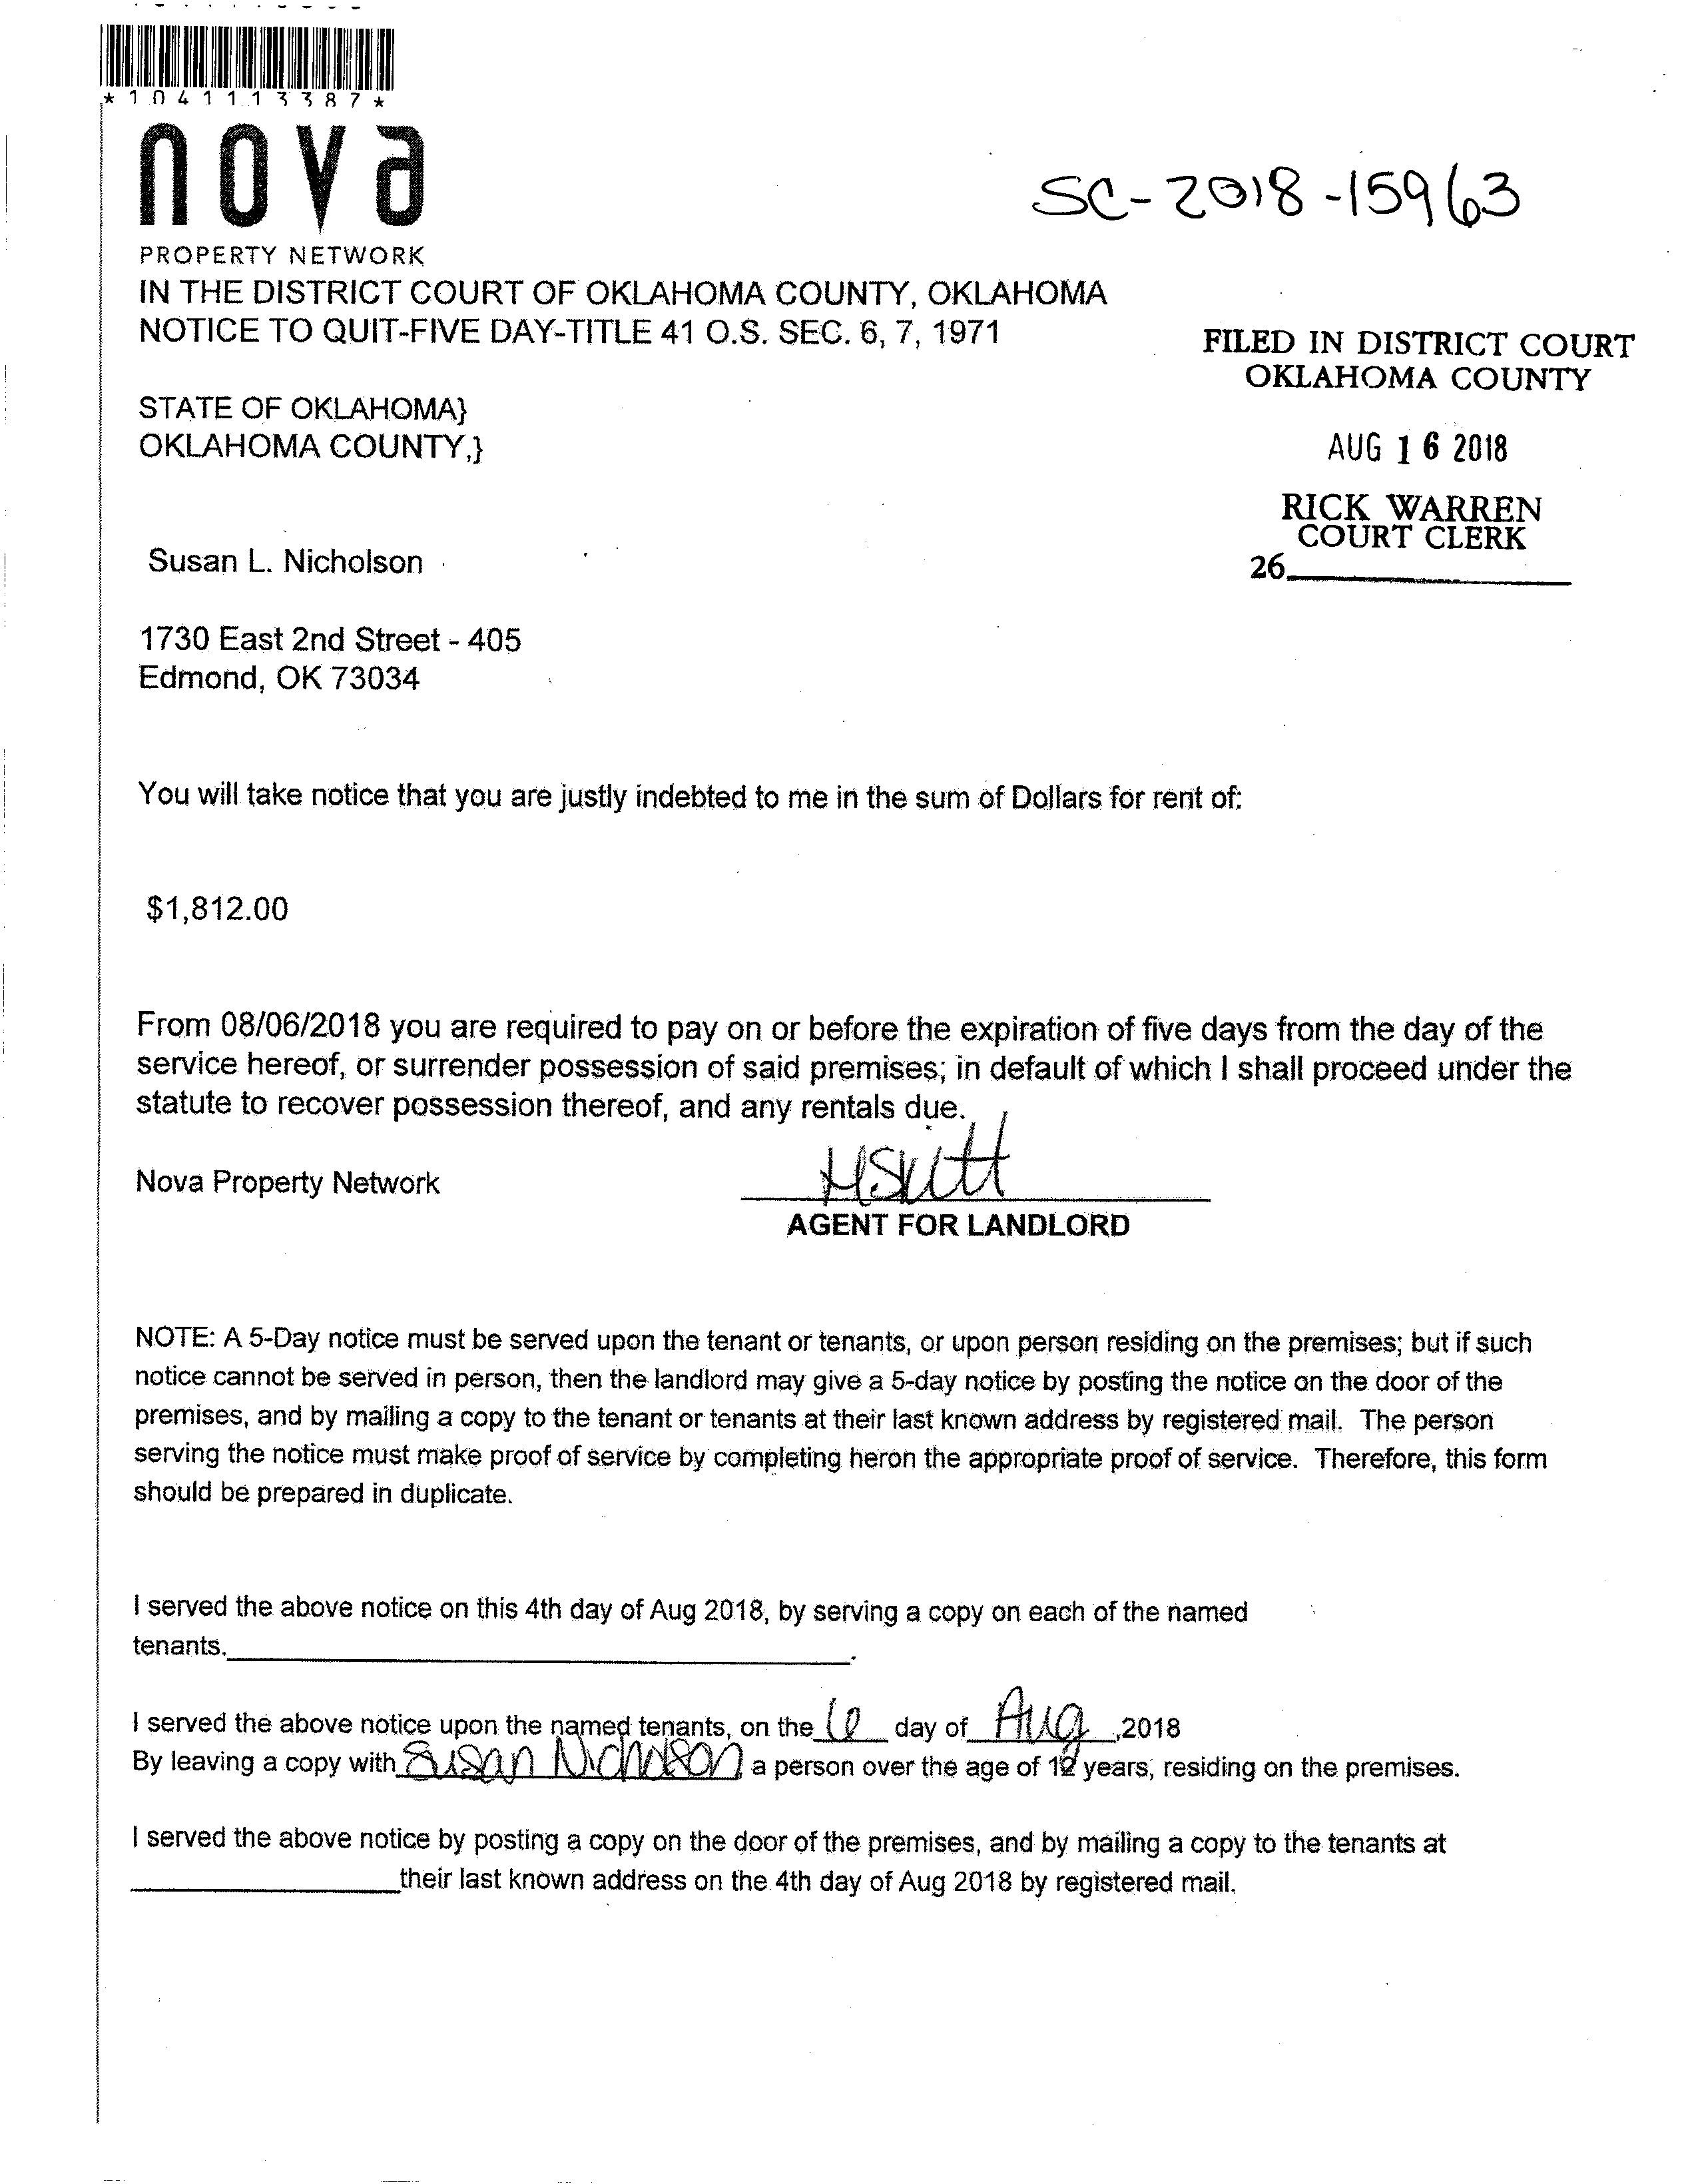 *1041113387*
nova
PROPERTY NETWORK
SC-2018-15963
IN THE DISTRICT COURT OF OKLAHOMA COUNTY, OKLAHOMA
NOTICE TO QUIT-FIVE DAY-TITLE 41 O.S. SEC. 6, 7, 1971
FILED IN DISTRICT COURT
OKLAHOMA COUNTY
STATE OF OKLAHOMA}
OKLAHOMA COUNTY,}
AUG 16 2018
RICK WARREN
COURT CLERK
26
Susan L. Nicholson
1730 East 2nd Street - 405
Edmond, OK 73034
You will take notice that you are justly indebted to me in the sum of Dollars for rent of:
$1,812.00
From 08/06/2018 you are required to pay on or before the expiration of five days from the day of the
service hereof, or surrender possession of said premises; in default of which I shall proceed under the
statute to recover possession thereof, and any rentals due.
Nova Property Network
AGENT FOR LANDLORD
NOTE: A 5-Day notice must be served upon the tenant or tenants, or upon person residing on the premises; but if such
notice cannot be served in person, then the landlord may give a 5-day notice by posting the notice on the door of the
premises, and by mailing a copy to the tenant or tenants at their last known address by registered mail. The person
serving the notice must make proof of service by completing heron the appropriate proof of service. Therefore, this form
should be prepared in duplicate.
I served the above notice on this 4th day of Aug 2018, by serving a copy on each of the named
tenants.
I served the above notice upon the named tenants, on the 6 day of Aug ,2018
By leaving a copy with Susan Nicholson a person over the age of 12 years, residing on the premises.
I served the above notice by posting a copy on the door of the premises, and by mailing a copy to the tenants at
their last known address on the 4th day of Aug 2018 by registered mail.